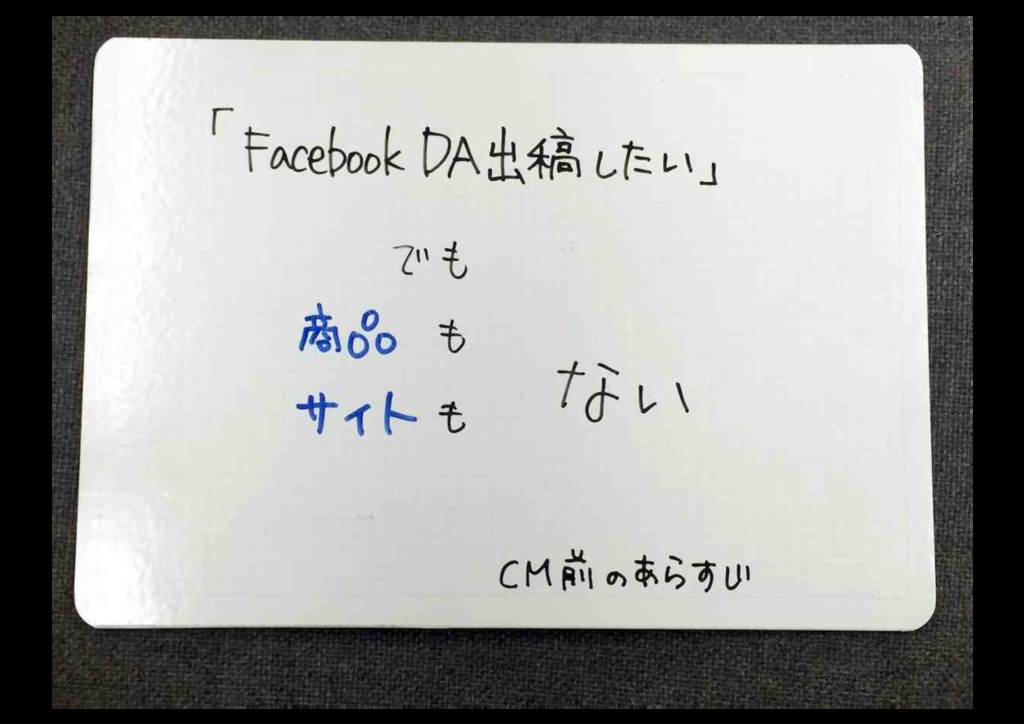 「Facebook DA出稿したい」
でも
商品も
サイトも
ない
CM前のあらすじ